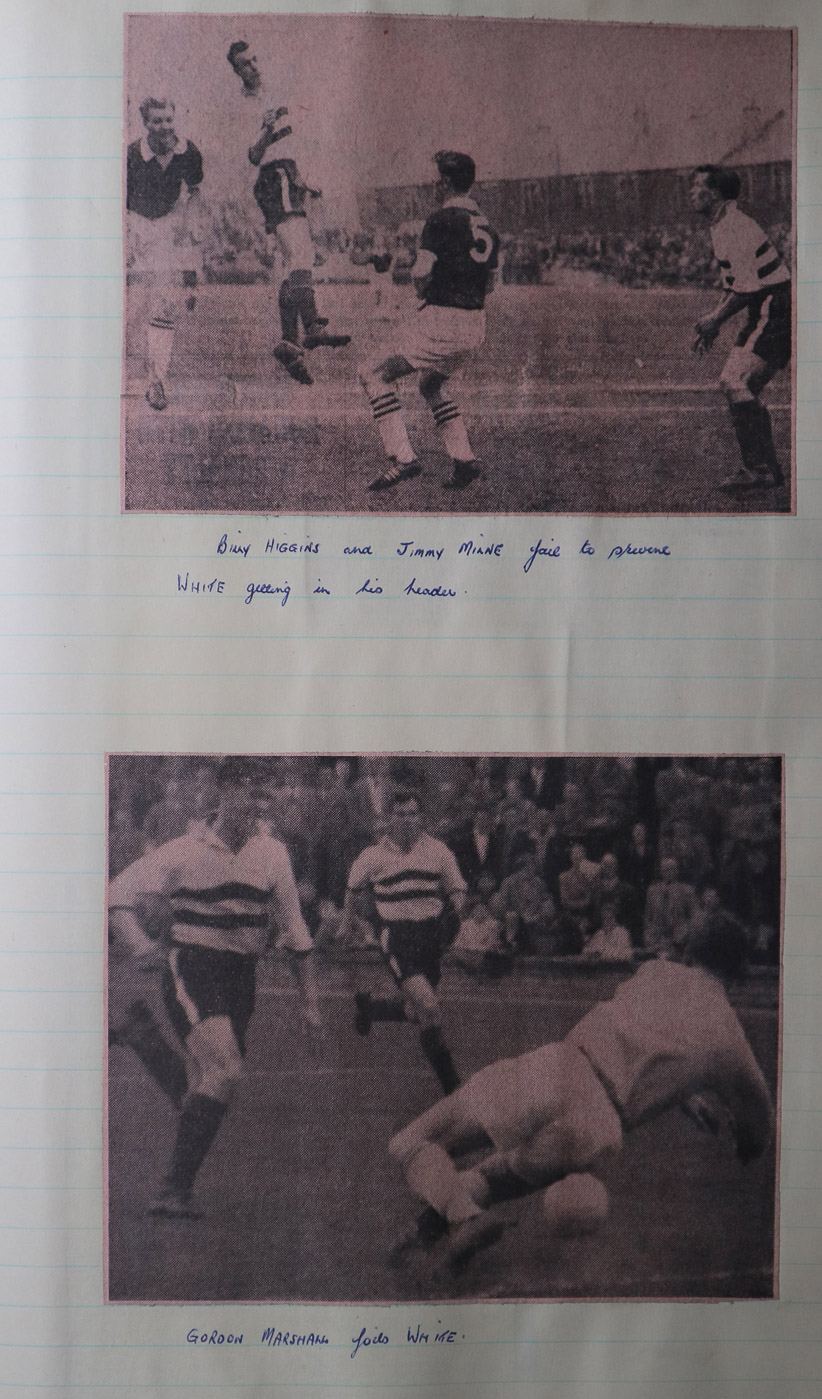 5
Billy HIGGINS and Jimmy MILNE fail to prevent
WHITE getting in his header.
GORDON MARSHALL foils WHITE.